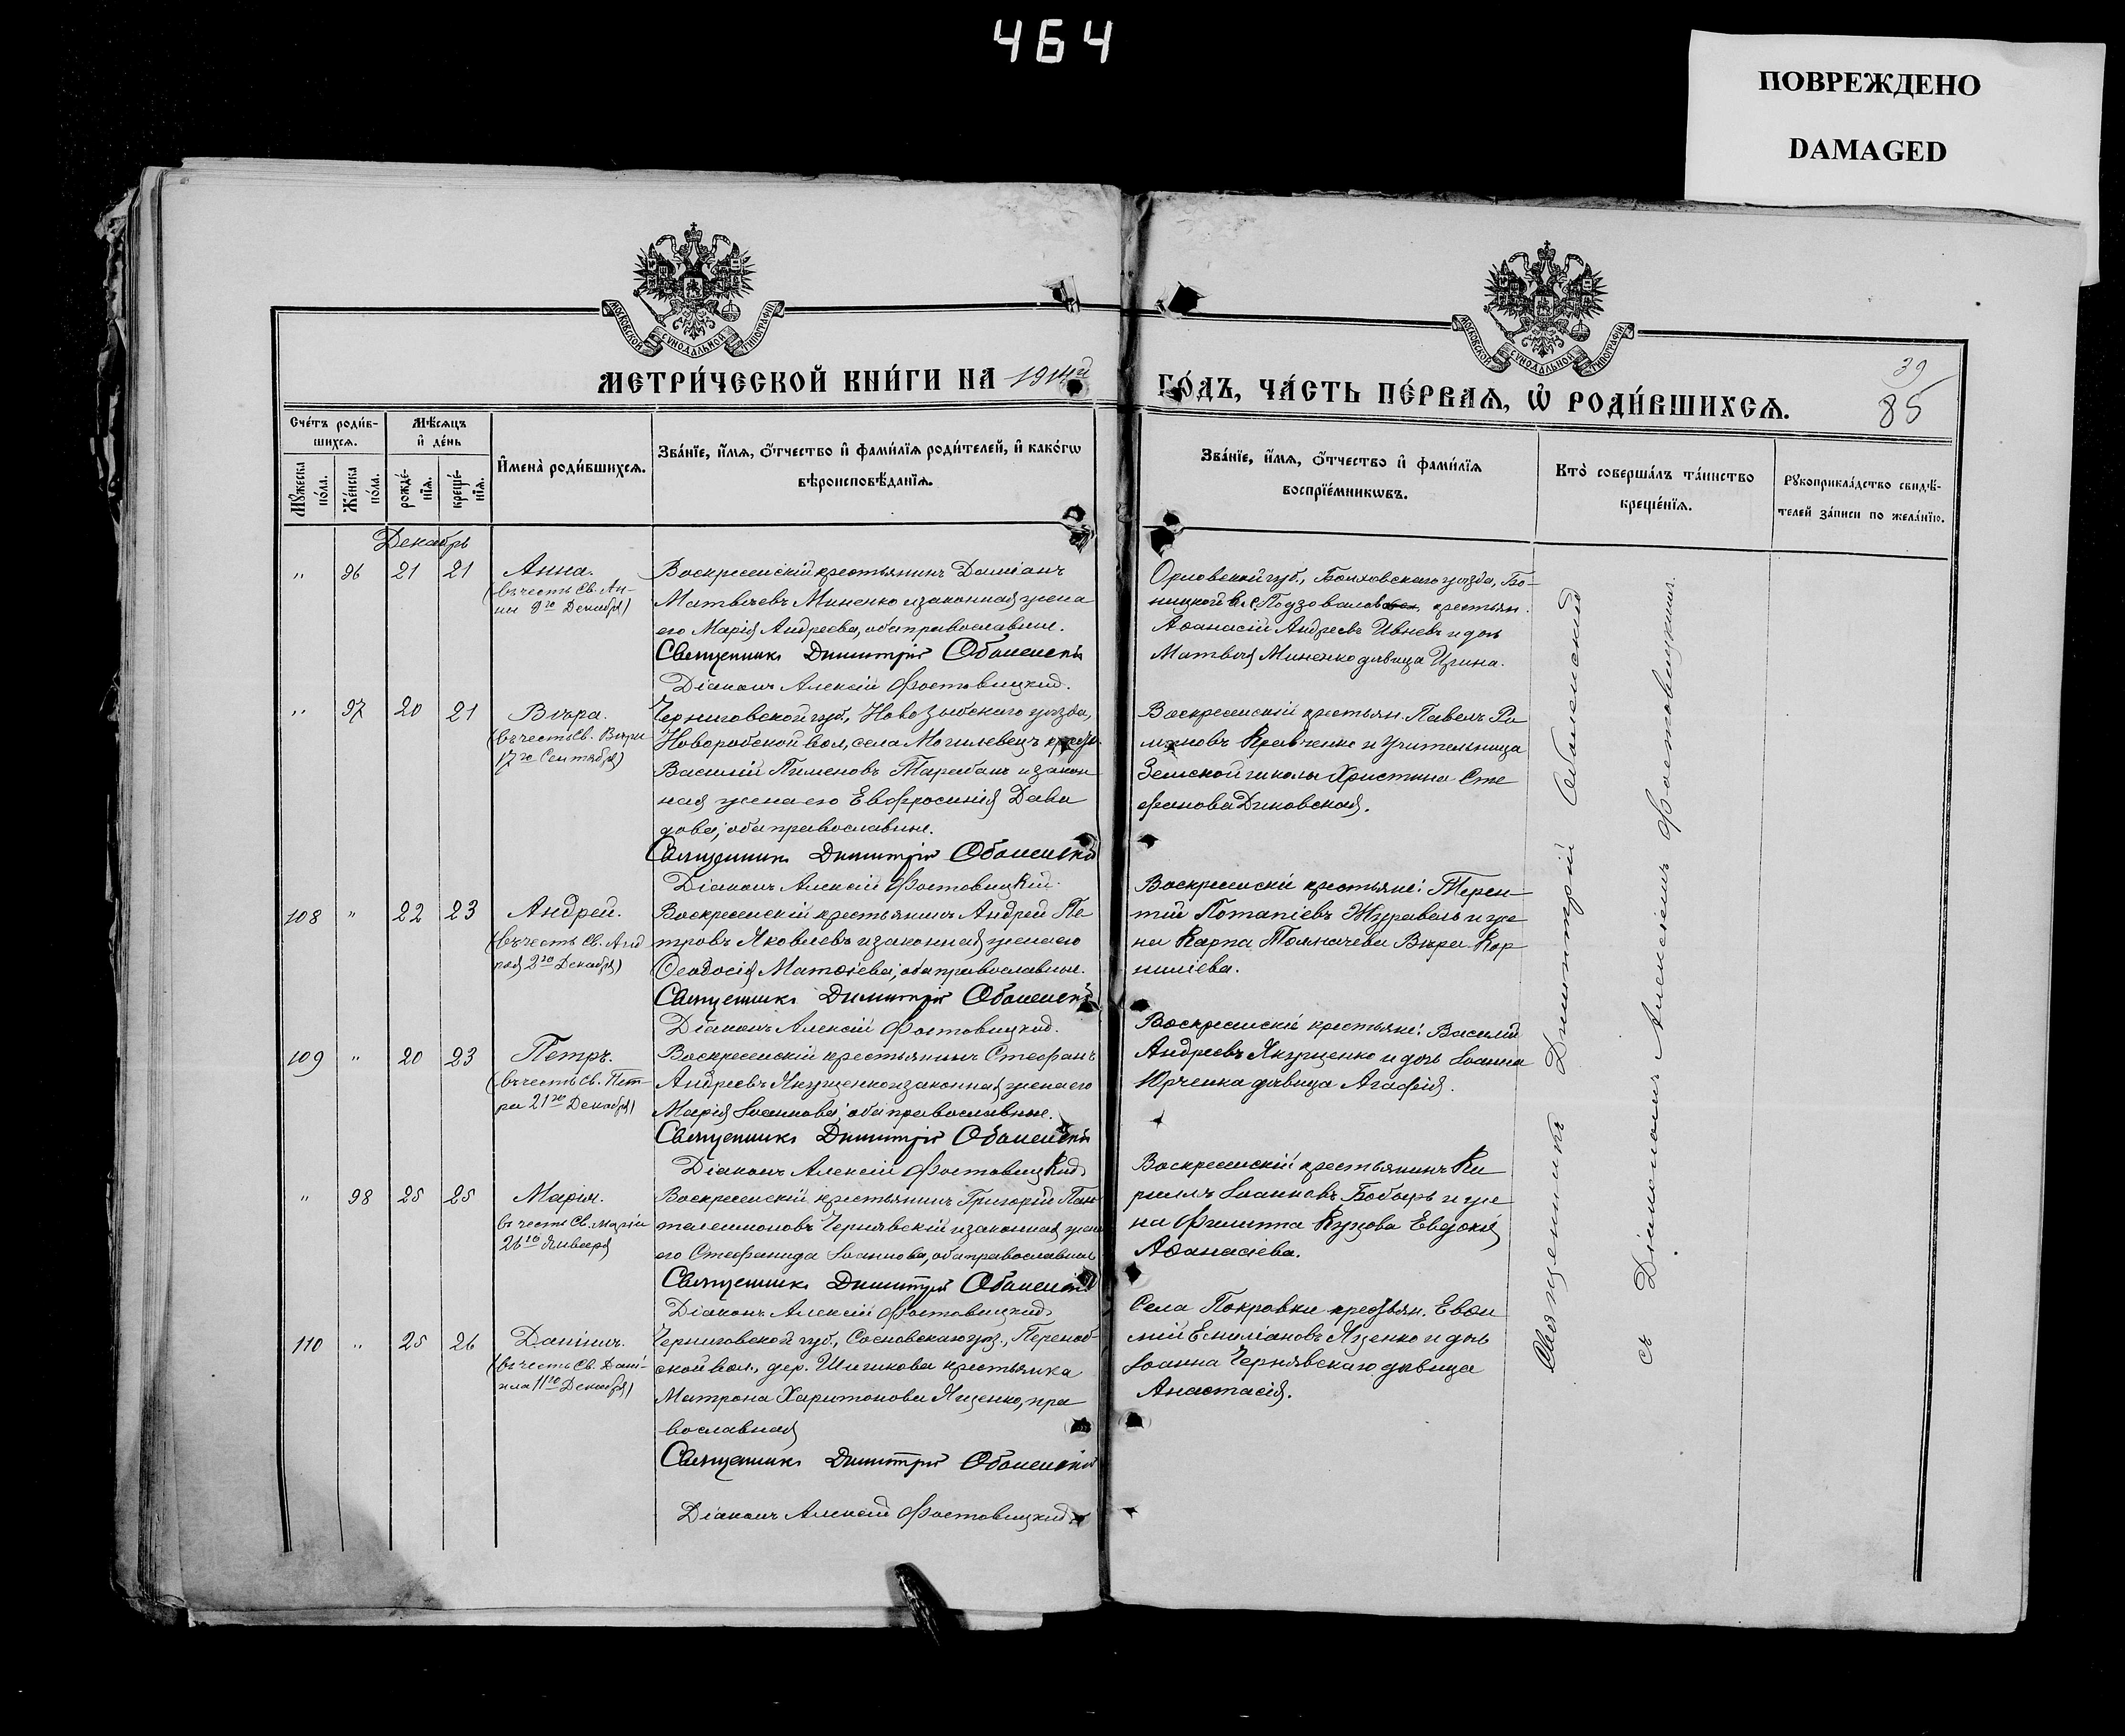 464
ПОВРЕЖДЕНО
DAMAGED
МОСКОВСКОЙ СѴНОДАЛЬНОЙ ТИПОГРАФІИ
МОСКОВСКОЙ СѴНОДАЛЬНОЙ ТИПОГРАФІИ
МЕТРИ́ЧЕСКОЙ КНИ́ГИ НА 1914й
ГО́ДЪ, ЧА́СТЬ ПЕ́РВАЯ, Ѡ҆ РОДИ́ВШИХСЯ.
39
85
Сче́тъ роди́в-
шихся.
Мѣ́сяцъ
и҆ де́нь
Мꙋ́жеска
по́ла.
Же́нска
по́ла.
рожде́-
нїя.
креще́-
нїя.
И҆мена̀ роди́вшихся.
Зва́нїе, и҆́мя, ѻ҆́тчество и҆ фами́лїя роди́телей, и҆ како́гѡ
вѣроисповѣ́данїя.
Зва́нїе, и҆́мя, ѻ҆́тчество и҆ фами́лїя
воспрїе́мникѡвъ.
Кто̀ соверша́лъ та́инство
креще́нїя.
Рꙋкоприкла́дство свидѣ́-
телей за́писи по жела́нїю.
Декабрь
" 96 21 21 Анна.
(въ честь Св. Ан-
ны 9го Декабря)
Воскресенскій крестьянинъ Даміанъ
Матвѣевъ Миненко и законная жена
его Марія Андреева, оба православные.
Священникъ Димитрій Оболенскій
Діаконъ Алексій Фостовицкій.
Орловской губ., Болховского уѣзда, Бо-
ницкой в. с. Подзовалов крестьян.
Аѳанасій Андреевъ Ивневъ и дочь
Матвѣя Миненко дѣвица Ирина.
" 97 20 21 Вѣра.
(въ честь Св. Вѣры
17го Сентября)
Черниговской губ., Новозыбского уѣзда,
Новоробской вол., села Могилевецъ крестьян.
Василій Пименовъ Тарабан и закон
ная жена его Евфросинія Дави
дова; оба православные.
Священникъ Димитрій Оболенскій
Діаконъ Алексій Фостовицкій.
Воскресенскій крестьян. Павелъ Ро
мановъ Кравченко и учительница
Земской школы Христина Сте
фанова Диковская.
108 " 22 23 Андрей.
(въ честь Св. Анд
рея 2го Декабря)
Воскресенскій крестьянинъ Андрей Пе
тровъ Яковлевъ и законная жена его
Ѳеодосія Матѳіева; оба православные.
Священникъ Димитрій Оболенскій
Діаконъ Алексій Фостовицкій.
Воскресенскіе крестьяне: Терен
тій Потапіевъ Журавель и же
на Карпа Толмачева Вѣра Кор
ниліева.
109 " 20 23 Петръ.
(въ честь Св. Пет-
ра 21го Декабря)
Воскресенскій крестьянинъ Стефанъ
Андреевъ Якущенко и законная жена его
Марія Іоаннова; оба православные.
Священникъ Димитрій Оболенскій
Діаконъ Алексій Фостовицкій
Воскресенскіе крестьяне: Василій
Андреевъ Якущенко и дочь Іоанна
Юрченка дѣвица Агафія.
" 98 25 25 Марія.
въ честь Св. Маріи
26го Января
Воскресенскій крестьянинъ Григорій Пан
телеимоновъ Чернявскій и законная жена
его Стефанида Іоаннова, оба православные
Священникъ Димитрій Оболенскій
Діаконъ Алексій Фостовицкій
Воскресенскій крестьянинъ Ки
риллъ Іоанновъ Бобырь и же
на Филиппа Куцова Евдокія
Аѳанасіева.
110 " 25 26 Даніилъ.
(въ честь Св. Дані-
ила 11го Декабря)
Черниговской губ., Сосновскаго уѣз.,
ской вол., дер. Шишкова крестьянка
Матрона Харитонова Яценко, пра
вославная
Священникъ Димитрій Оболенскій
Діаконъ Алексій Фостовицкій
Села Покровки крестьян. Евѳи
мій Емиліановъ Яценко и дочь
Іоанна Чернявскаго дѣвица
Анастасія.
Священникъ Димитрій Оболенскій
съ Діакономъ Алексіемъ Фостовицкимъ.